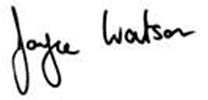 Joyce Watson